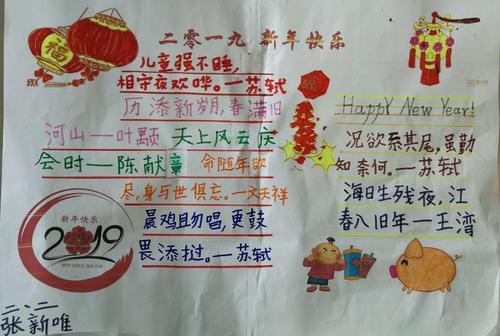 二零一九 新年快乐
福
儿童强不睡,
相守夜欢哗。一苏轼
历添新岁月,春满旧
河山一叶颙 天上风云庆
会时一陈献章 命随年欲
尽,身与世俱忘。一文天祥
晨鸡且勿唱,更鼓
畏添挝。一苏轼
新年快乐
2019
HAPPY NEW YEAR
Happy New Year!
况欲系其尾,虽勤
知奈何。一苏轼
海日生残夜,江
春八旧年一王湾
二、二
张新唯